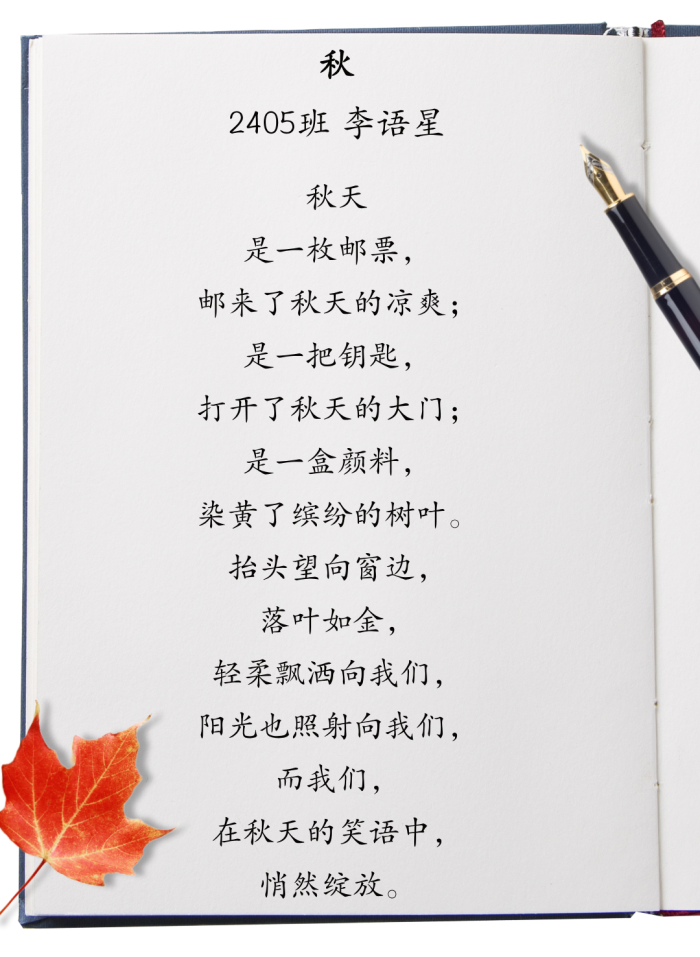 秋
2405班 李语星
秋天
是一枚邮票，
邮来了秋天的凉爽；
是一把钥匙，
打开了秋天的大门；
是一盒颜料，
染黄了缤纷的树叶。
抬头望向窗边，
落叶如金，
轻柔飘洒向我们，
阳光也照射向我们，
而我们，
在秋天的笑语中，
悄然绽放。